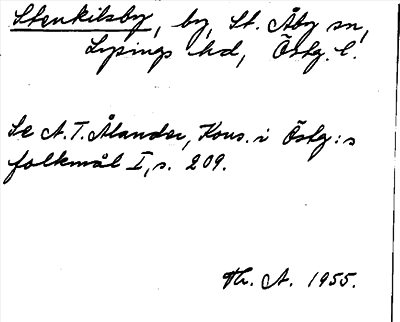 Stenkilsby, by, St. Åby sn,
Lysings hd, Östg. l.
Se A. T. Ålander, Kons. i Östg:s
folkmål I, s. 209.
Th. A. 1955.